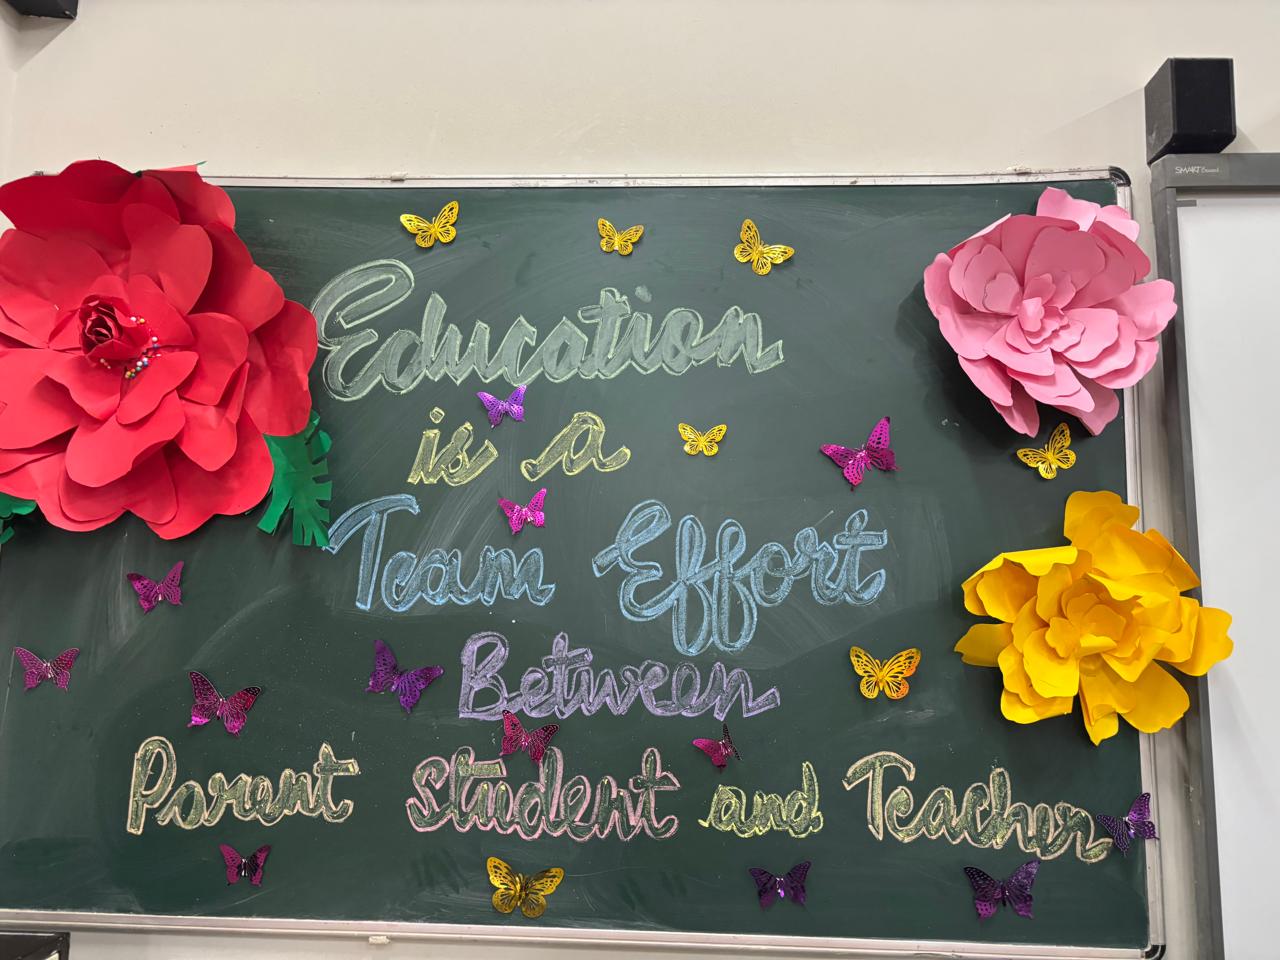 Education
is a
Team Effort
Between
Parent Student and Teacher
SMART Board